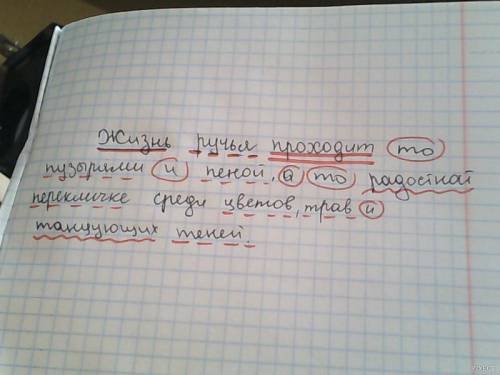 Жизнь ручья проходит то
пузырями и пеной, а то радостной
перекличке среди цветов, трав и
танцующих теней.